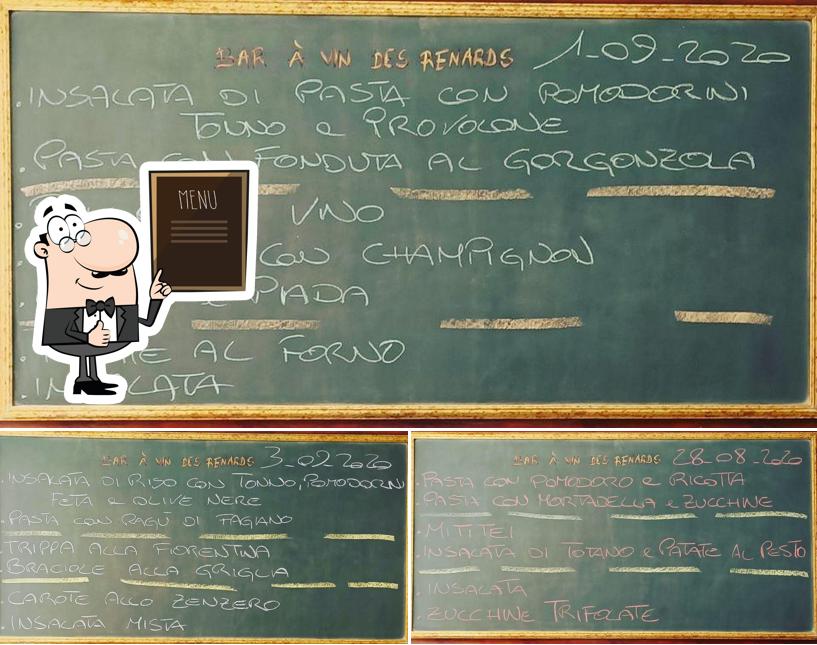 BAR À VIN DES RENARDS 1-09-2020
.INSALATA DI PASTA CON POMODORINI
TONNO e PROVOLONE
.PASTA CON FONDUTA AL GORGONZOLA
MENU
VINO
CON CHAMPIGNON
e PIADA
AL FORNO
BAR À VIN DES RENARDS 3-09-2020
.INSALATA DI RISO CON TONNO, POMODORINI
FETA e OLIVE NERE
.PASTA CON RAGÙ DI FAGIANO
.TRIPPA ALLA FIORENTINA
.BRACIOLE ALLA GRIGLIA
.CAROTE ALLO ZENZERO
.INSALATA MISTA
BAR À VIN DES RENARDS 28-08-2020
.PASTA CON POMODORO e RICOTTA
.PASTA CON MORTADELLA e ZUCCHINE
.MITITEI
.INSALATA DI TOTANO e PATATE AL PESTO
.INSALATA
.ZUCCHINE TRIFOLATE